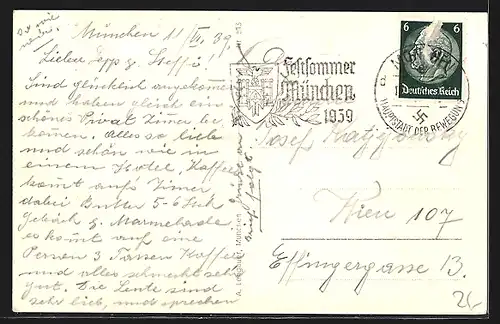 München 11/VI. 39.
Lieber Sepp & Steffi!
Sind glücklich angekommen
und haben gleich ein
schönes Privat Zimer be-
komen. Alles so lieb
und schön wie in
einem Hotel, Kaffee
komt auf's Zimer
dabei Butter 5-6 Stk
Gebäck & Marmelade
es komt auf eine
Person 3 Tassen Kaffee
und alles schmeckt sehr
gut. Die Leute sind
sehr lieb, und sprechen
Festsommer
München
1939
6 6
Deutsches Reich
HAUPTSTADT DER BEWEGUNG
Josef
Wien 107
Effingergasse 13.